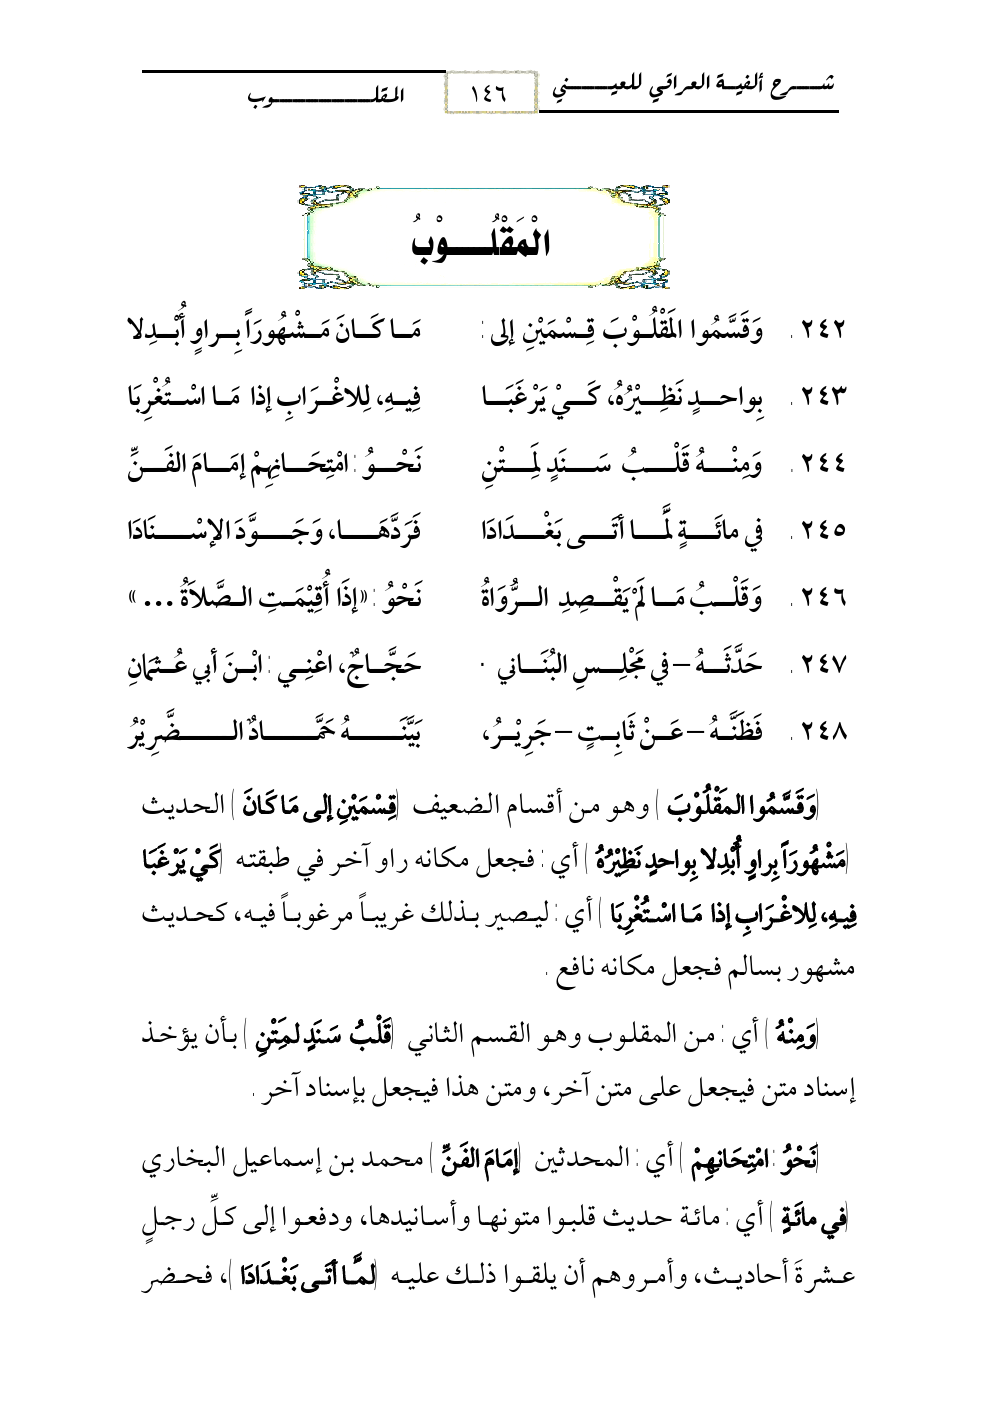 شـــرح ألفيـة العراقي للعيـــــني
١٤٦
المقلــــــــــــــوب
الْمَقْلُـــوْبُ
٢٤٢ . وَقَسَّمُوا المَقْلُـوْبَ قِـسْمَيْنِ إلى : مَـا كَـانَ مَـشْهُورَاً بِـراوٍ أُبْـدِلا
٢٤٣ . بِواحـدٍ نَظِـيْرُهُ، كَـيْ يَرْغَبَـا فِيـهِ، لِلاغْـرَابِ إذا مَـا اسْـتُغْرِبَا
٢٤٤ . وَمِنْـهُ قَلْـبُ سَـنَدٍ لِمَـتْنِ نَحْـوُ : امْتِحَـانِهِمْ إمَـامَ الفَـنِّ
٢٤٥ . في مائَـةٍ لَمَّـا أتَـى بَغْـدَادَا فَرَدَّهَـا، وَجَـوَّدَ الإسْـنَادَا
٢٤٦ . وَقَلْـبُ مَـا لَمْ يَقْـصِدِ الـرُّوَاةُ نَحْوُ : «إذَا أُقِيْمَـتِ الـصَّلاَةُ ... »
٢٤٧ . حَدَّثَـهُ – في مَجْلِـسِ البُنَـاني · حَجَّـاجٌ، اعْنِـي : ابْـنَ أبي عُـثمَانِ
٢٤٨ . فَظَنَّـهُ – عَـنْ ثَابِـتٍ – جَرِيْـرُ، بَيَّنَـهُ حَمَّـادٌ الـضَّرِيْرُ
(وَقَسَّمُوا المَقْلُوْبَ ) وهو من أقسام الضعيف (قِسْمَيْنِ إلى مَا كَانَ ) الحديث
(مَشْهُورَاً بِراوٍ أُبْدِلا بِواحدٍ نَظِيْرُهُ ) أي : فجعل مكانه راو آخر في طبقته (كَيْ يَرْغَبَا
فِيهِ، لِلاغْرَابِ إذا مَا اسْتُغْرِبَا ) أي : ليصير بذلك غريباً مرغوباً فيه، كحديث
مشهور بسالم فجعل مكانه نافع .
(وَمِنْهُ ) أي : من المقلوب وهو القسم الثاني (قَلْبُ سَنَدٍ لمَتْنِ ) بأن يؤخذ
إسناد متن فيجعل على متن آخر، ومتن هذا فيجعل بإسناد آخر .
(نَحْوُ : امْتِحَانِهِمْ ) أي : المحدثين (إمَامَ الفَنِّ ) محمد بن إسماعيل البخاري
(في مائَةٍ ) أي : مائة حديث قلبوا متونها وأسانيدها، ودفعوا إلى كلِّ رجلٍ
عشرةَ أحاديث، وأمروهم أن يلقوا ذلك عليه (لمَّا أتَى بَغْدَادَا )، فحضر